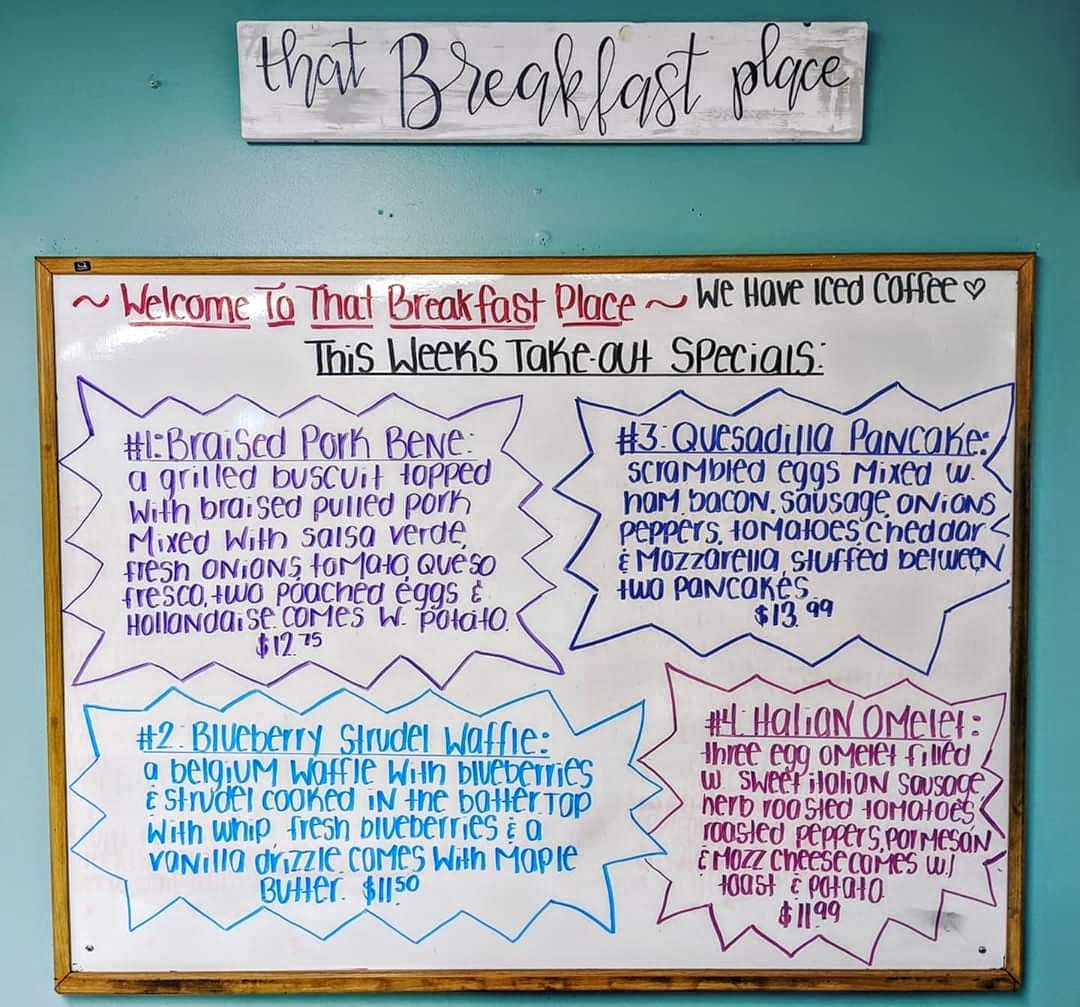 that Breakfast place
~ Welcome To That Breakfast Place ~ We Have Iced Coffee ♡
This Weeks Take-out Specials:
#1: Braised Pork Bene:
a grilled buscuit topped
with braised pulled pork
mixed with salsa verde,
fresh onions, tomato, queso
fresco, two poached eggs &
Hollandaise. comes w. potato.
$12.75
#3: Quesadilla Pancake:
scrambled eggs mixed w.
ham, bacon, sausage, onions
peppers, tomatoes, cheddar
& mozzarella, stuffed between
two pancakes.
$13.99
#2: Blueberry Strudel Waffle:
a belgium waffle with blueberries
& strudel cooked in the batter. Top
with whip, fresh blueberries & a
vanilla drizzle. comes with Maple
Butter. $11.50
#4: Italian Omelet:
three egg omelet filled
w. sweet italian sausage
herb roasted tomatoes
roasted peppers, parmesan
& mozz cheese comes w/
toast & potato.
$11.99